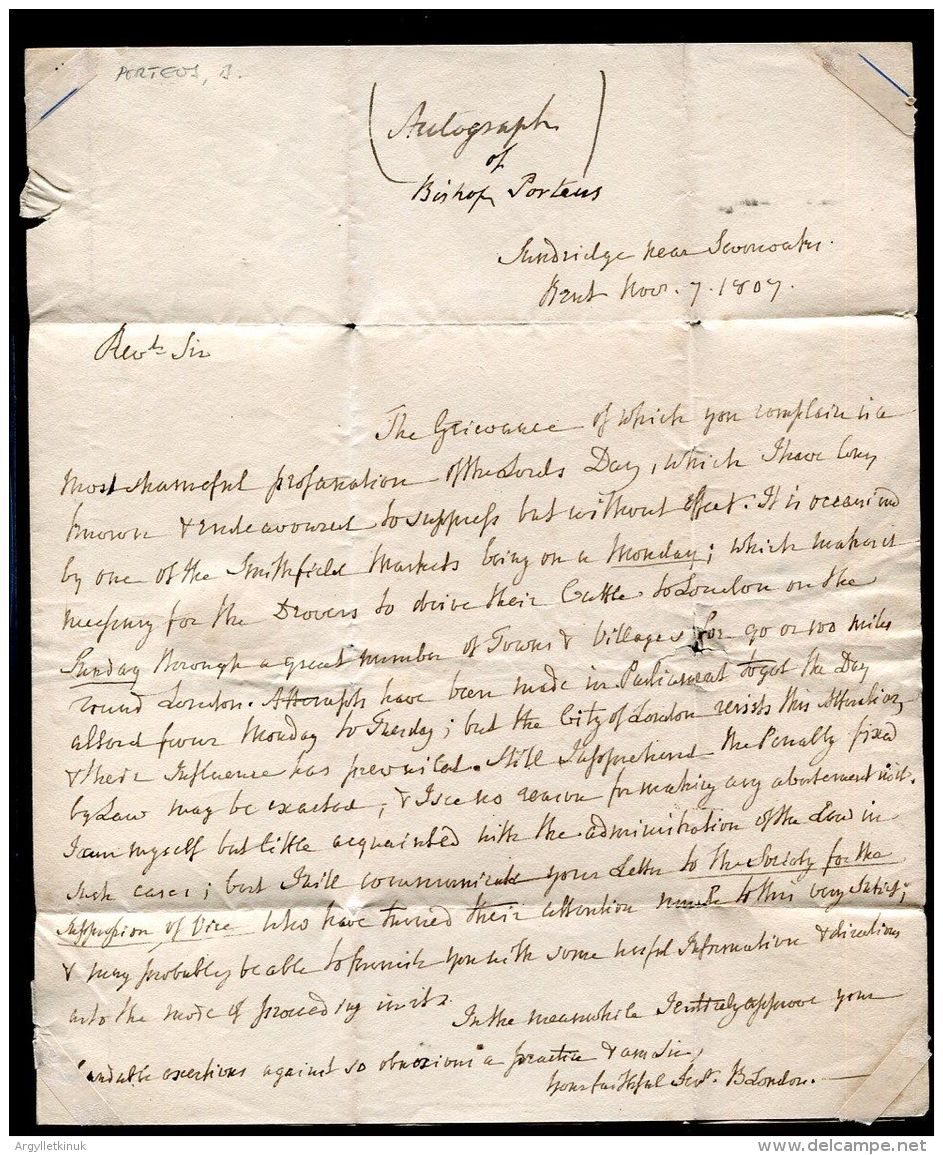 PORTEUS, B.
(Autograph
of
Bishop Porteus)
Sundridge near Sevenoaks.
Kent Nov. 7. 1807.
Revd. Sir
The Grievance of which you complain is a
most shameful profanation of the Lords Day, which I have long
known & endeavoured to suppress but without effect. It is occasiond
by one of the Smithfield Markets being on a Monday; which makes it
necessary for the Drovers to drive their Cattle to London on the
Sunday through a great number of Towns & Villages for 90 or 100 miles
round London. Attempts have been made in Parliament to get the Day
alterd from Monday to Tuesday; but the City of London resists this Alteration,
& their Influence has prevailed. Still I apprehend the Penalty fixed
by Law may be exacted, & I see no reason for making any abatement in it.
I am myself but little acquainted with the administration of the Law in
such cases; but I will communicate your Letter to the Society for the
suppression of Vice who have turned their attention much to this very
& may probably be able to furnish you with some useful Information & directions
as to the mode of proceeding in it.
In the meanwhile I entirely approve your
laudable exertions against so obnoxious a practice & am Sir,
your faithful Servt. B London.
Argylletkinuk
www.delcampe.net